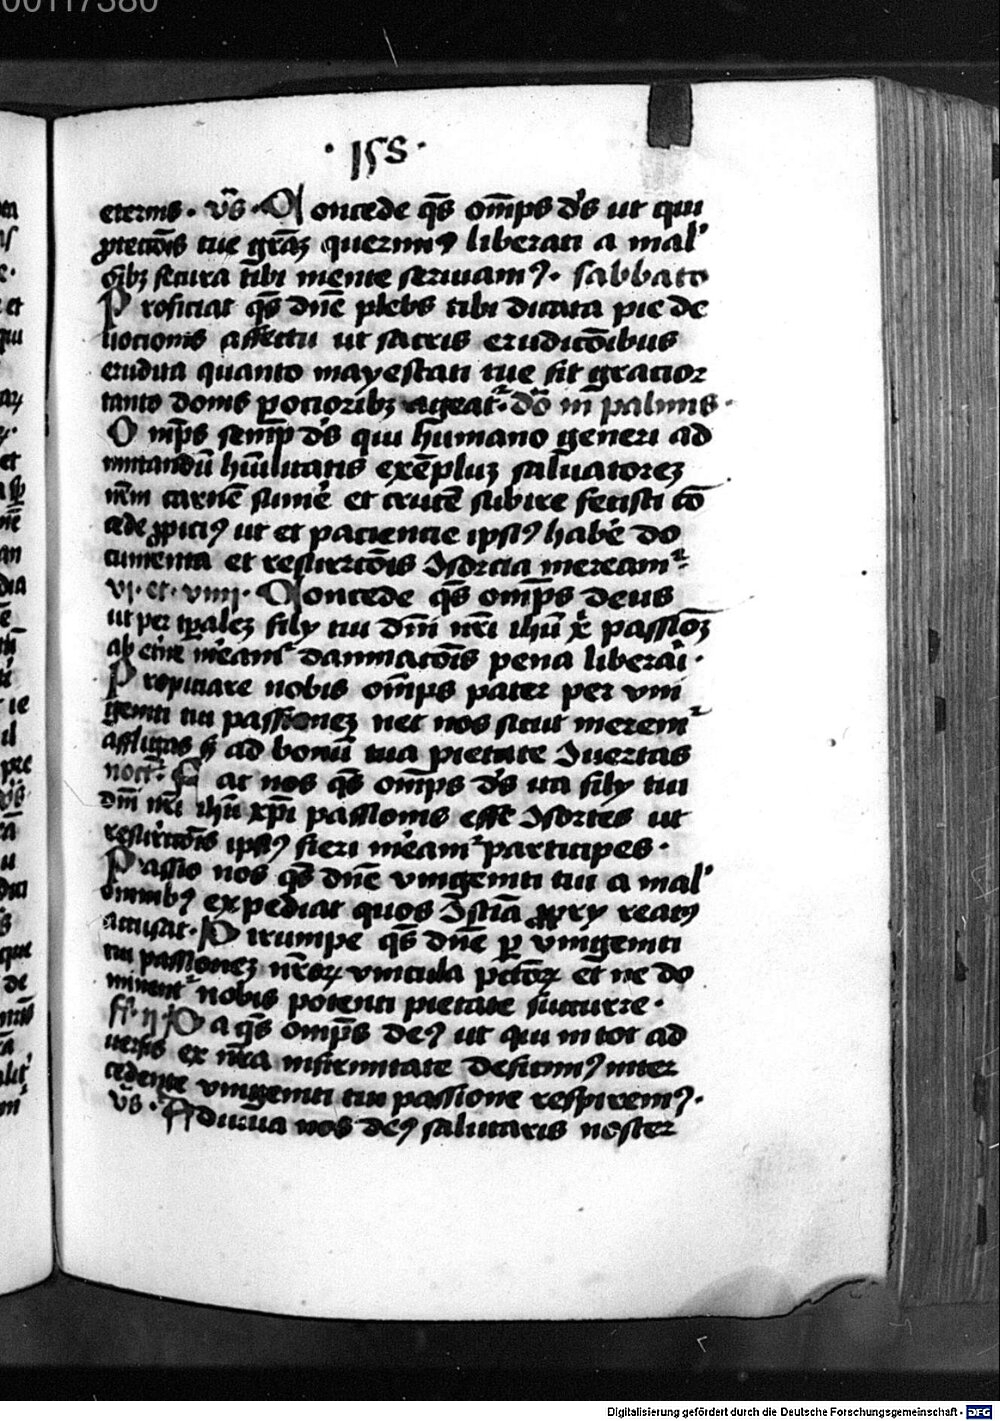 00117380
· 158 ·
eternis · vs̄ · Concede qs̄ om̄ps ds̄ ut qui
ꝓtectiōis tue grāꝫ querimꝰ liberati a mal’
oībꝫ secura tibi mente seruiamꝰ · sabbato
Proficiat qs̄ dn̄e plebs tibi dicata pie de
uocionis affectu ut sacris eruditōibus
erudita quanto mayestati tue fit gracior
tanto donis pocioribꝫ ageatr̃ · dō in palmis ·
Omp̄s semp̄ ds̄ qui humano generi ad
imitandū hūilitatis exēpluꝫ saluatoreꝫ
nr̄m carnē sume᷑ et crucē subire fecisti cō
cede ꝓpiciꝰ ut et paciencie ipsiꝰ habe᷑ do
cumenta et resurrectōis ꝯsorcia mereamr̃
vi · et · viiii · Concede qs̄ om̄ps deus
ut per tp̄aleꝫ fily tui dn̄i nr̄i ihū xp̄i passioēꝫ
ab et᷑ne me᷑amr̃ damnacōis pena liberari ·
Propiciare nobis om̄ps pater per vni
geniti tui passioneꝫ nec nos sicut meremr̃
affligas sꝫ ad bonū tua pietate ꝯuertas
noct᷑ · Fac nos qs̄ om̄ps ds̄ ita fily tui
dn̄i nr̄i ihū xp̄i passionis esse ꝯsortes ut
resurrectōis ipsiꝰ fieri me᷑amr̃ participes ·
Passio nos qs̄ dn̄e vnigeniti tui a mal’
omnibꝰ expediat quos ꝯsciā ꝓpry reatꝰ
accusat · Dirumpe qs̄ dn̄e ꝑ vnigeniti
tui passioneꝫ nr̄oꝝ vincula pctōꝝ et ne do
minentr̃ nobis potenti pietate succurre ·
fr̃ · ii · Da qs̄ omp̄s deꝰ ut qui in tot ad
uersis ex nr̄a infirmitate deficimꝰ inter
cedente vnigeniti tui passione respiremꝰ ·
vs̄ · Adiuua nos deꝰ salutaris noster
Digitalisierung gefördert durch die Deutsche Forschungsgemeinschaft - DFG